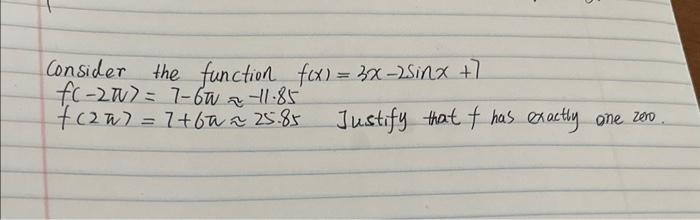 Consider the function f(x) = 3x-2sinx +7
f(-2π) = 7-6π ≈ -11.85
f(2π) = 7+6π ≈ 25.85 Justify that f has exactly one zero.